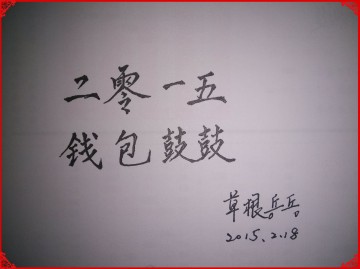 二零一五
钱包鼓鼓
草根兵兵
2015.2.18